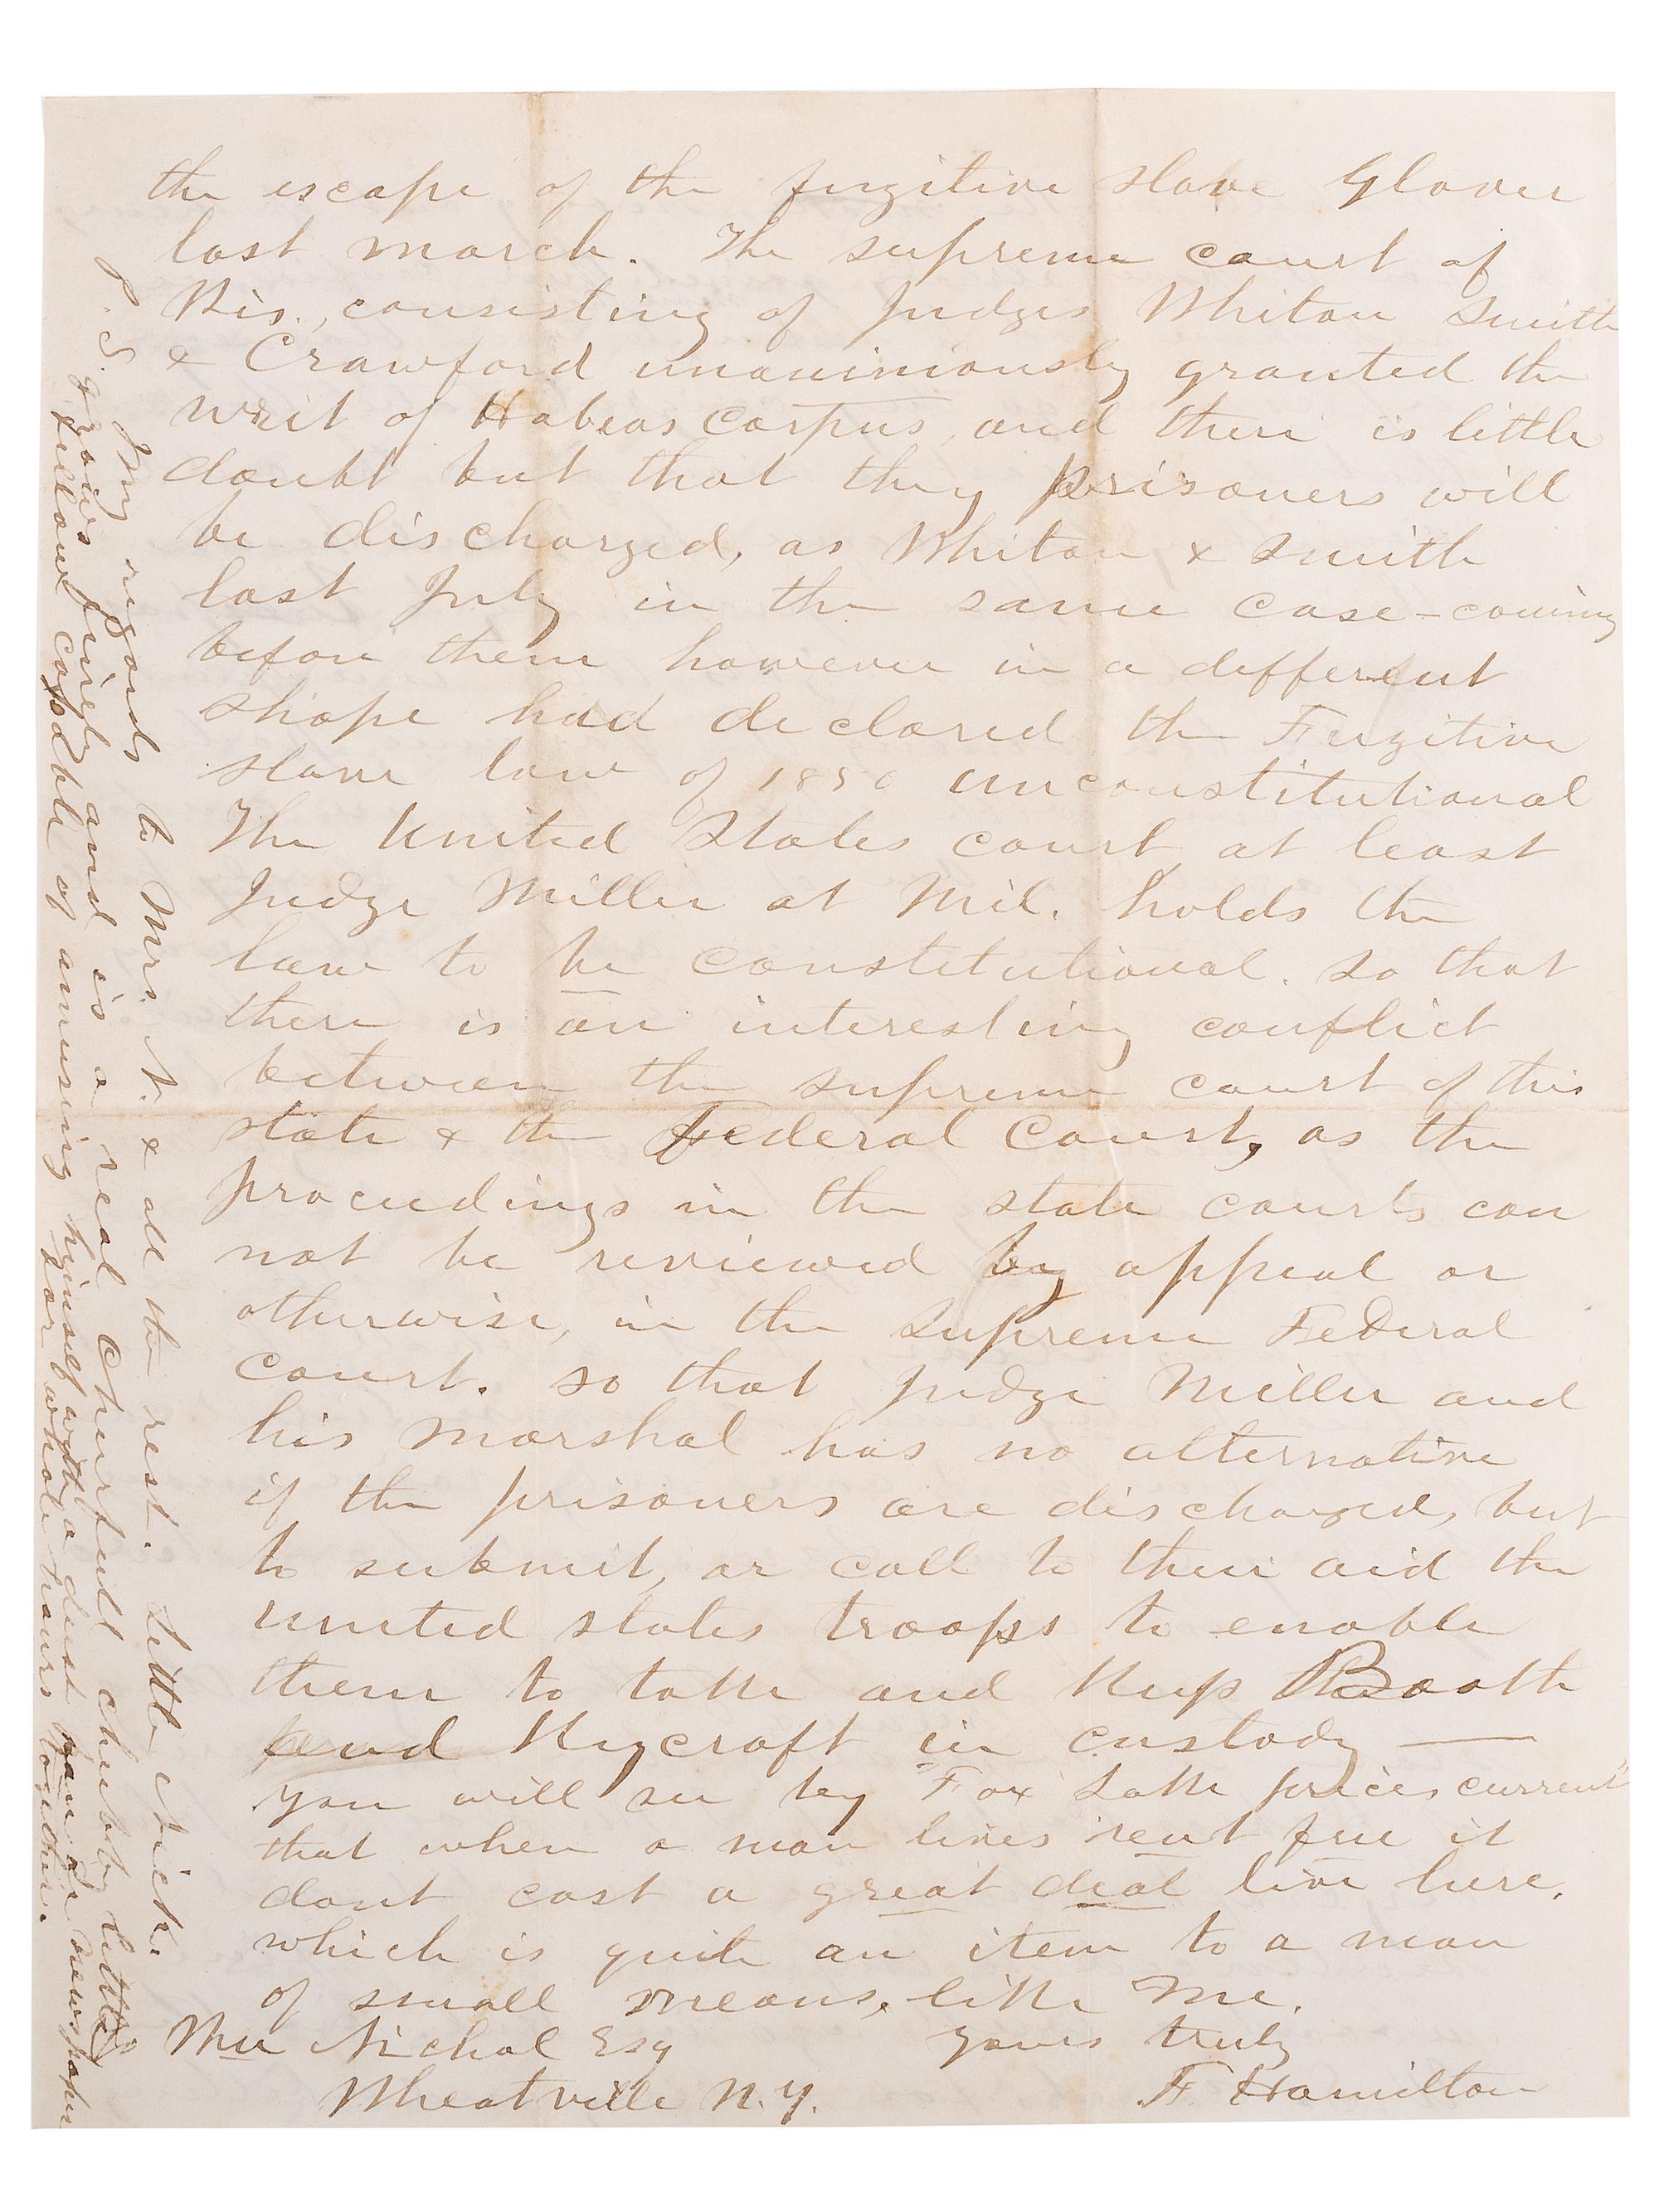 the escape of the fugitive slave Glover
last march. The supreme court of
Wis., consisting of Judges Whiton Smith
& Crawford unaniniously granted the
writ of Habeas Corpus, and there is little
doubt but that they prisoners will
be discharged, as Whiton & Smith
last July in the same case - coming
before them however in a different
shape had declared the Fugitive
slave law of 1850 unconstitutional
The United States court, at least
Judge Miller at Mil. holds the
law to be constitutional. so that
there is an interesting conflict
between the supreme court of this
state & the Federal Court, as the
proceedings in the state courts can
not be reviewed by appeal or
otherwise, in the Supreme Federal
Court. so that Judge Miller and
his marshal has no alternative
if the prisoners are discharged, but
to submit, or call to their aid the
united states troops to enable
them to take and keep Booth
and Rycraft in custody —
you will see by "Fox Lake prices current"
that when a man lives rent free it
dont cost a great deal live here,
which is quite an item to a man
of small means, like me.
yours truly
Wm Nichol Esq
F. Hamilton
Wheatville N.Y.
P.S. My regards to Mrs. N. & all the rest. Little Nick.
grows finely and is a real Cheerfull chubby little
fellow capable of amusing hinself with a deist pan or newspaper
for whole hours together.